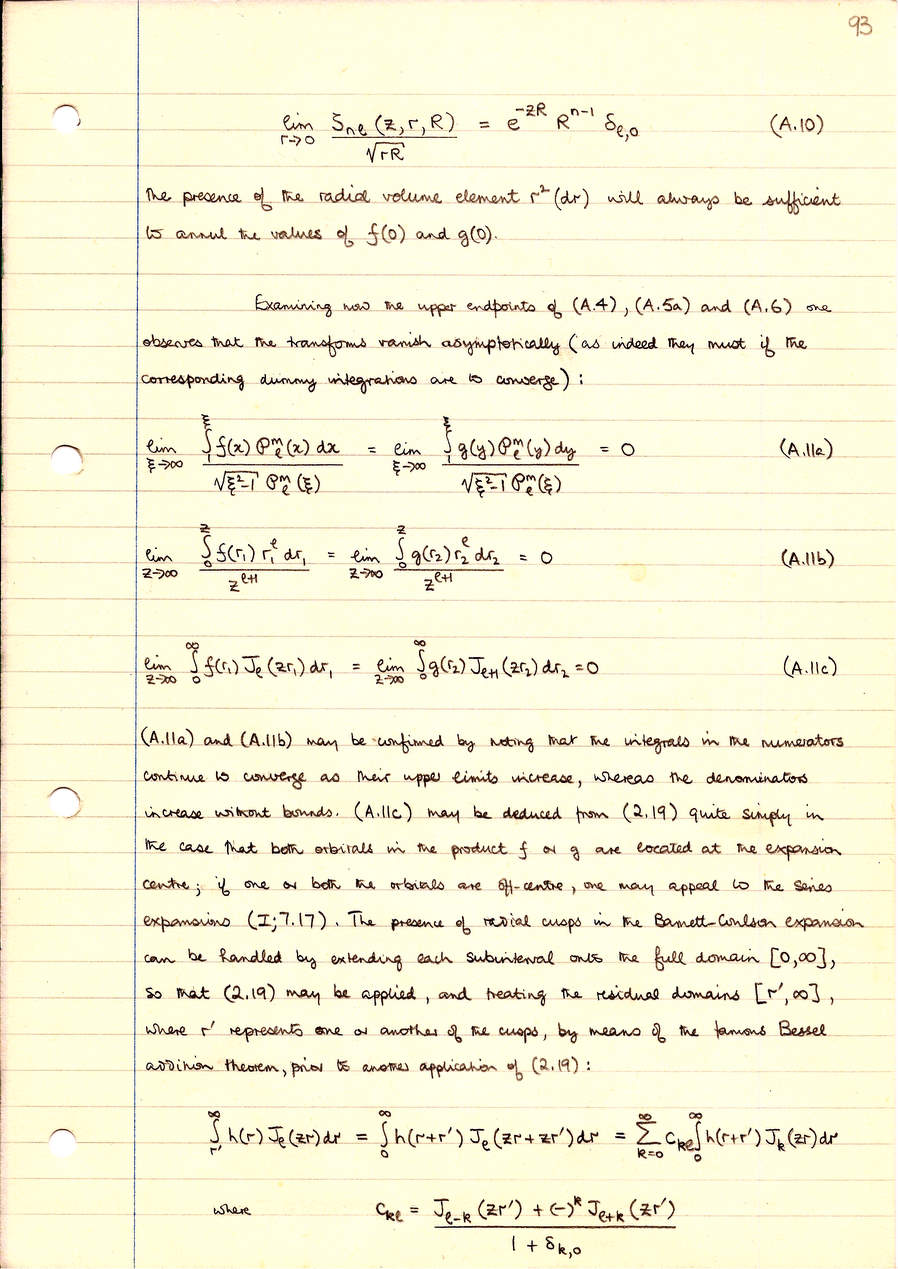 93
lim r→0 ζnℓ(z,r,R) / √rR = e^-zR R^n-1 δℓ,0 (A.10)
The presence of the radial volume element r²(dr) will always be sufficient
to annul the values of f(0) and g(0).
Examining now the upper endpoints of (A.4), (A.5a) and (A.6) one
observes that the transforms vanish asymptotically (as indeed they must if the
corresponding dummy integrations are to converge):
lim ξ→∞ ∫₁^ξ f(x) 𝒫ℓ^m(x) dx / √ξ²-1 𝒫ℓ^m(ξ) = lim ξ→∞ ∫₁^ξ g(y) 𝒫ℓ^m(y) dy / √ξ²-1 𝒫ℓ^m(ξ) = 0 (A.11a)
lim z→∞ ∫₀^z f(r₁) r₁^ℓ dr₁ / z^ℓ+1 = lim z→∞ ∫₀^z g(r₂) r₂^ℓ dr₂ / z^ℓ+1 = 0 (A.11b)
lim z→∞ ∫₀^∞ f(r₁) Jℓ(zr₁) dr₁ = lim z→∞ ∫₀^∞ g(r₂) Jℓ+1(zr₂) dr₂ = 0 (A.11c)
(A.11a) and (A.11b) may be confirmed by noting that the integrals in the numerators
continue to converge as their upper limits increase, whereas the denominators
increase without bounds. (A.11c) may be deduced from (2.19) quite simply in
the case that both orbitals in the product f or g are located at the expansion
centre; if one or both the orbitals are off-centre, one may appeal to the series
expansions (I;7.17). The presence of radial cusps in the Barnett-Coulson expansion
can be handled by extending each subinterval onto the full domain [0,∞],
so that (2.19) may be applied, and treating the residual domains [r′,∞],
where r′ represents one or another of the cusps, by means of the famous Bessel
addition theorem, prior to another application of (2.19):
∫r′^∞ h(r) Jℓ(zr) dr = ∫₀^∞ h(r+r′) Jℓ(zr+zr′) dr = Σ k=0^∞ ckℓ ∫₀^∞ h(r+r′) Jk(zr) dr
where ckℓ = Jℓ-k(zr′) + (-)^k Jℓ+k(zr′) / 1 + δk,0